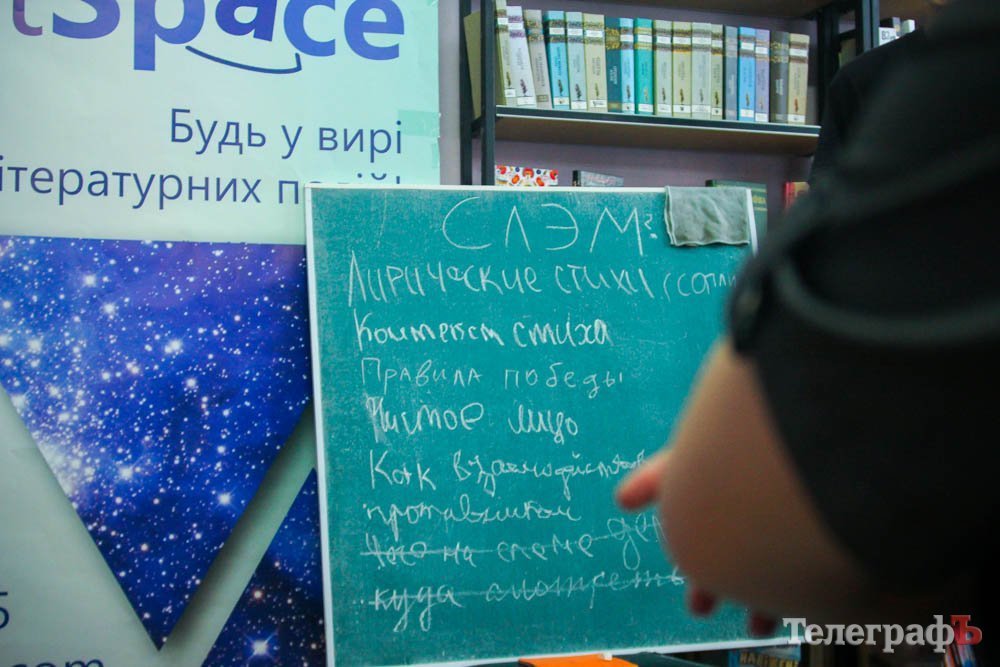 tSpace
Будь у вирі
ітературних подій!
СЛЭМ?
ЛИРИЧЕСКИЕ СТИХИ (СОПЛИ
Контекст стиха
Правила победы
Чистое лицо
Как взаимодейств
противником
что на слеме де
куда смотреть
5
com
ТелеграфЪ